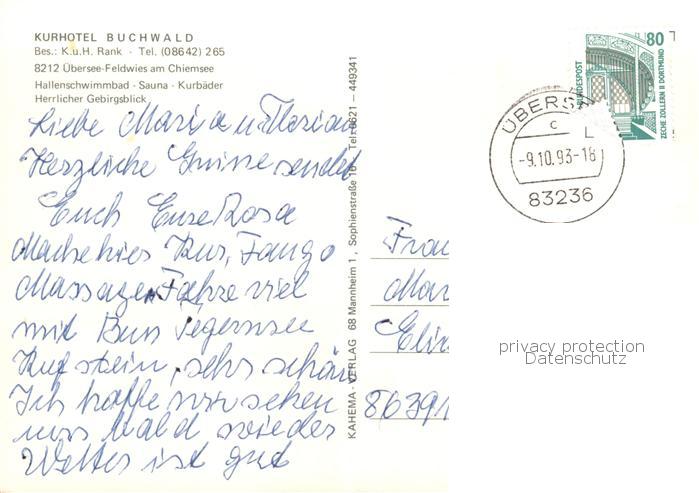 KURHOTEL BUCHWALD
Bes.: K.u.H. Rank - Tel. (08642) 265
8212 Übersee-Feldwies am Chiemsee
Hallenschwimmbad - Sauna - Kurbäder
Herrlicher Gebirgsblick
Liebe Maria u Florian
Herzliche Grüsse sendet
Euch Eure Rosa
Mache hier Kur, Fango
Massagen Fahre viel
mit Bus Tegernsee
Kufstein, sehr schön
Ich hoffe wir sehen
uns bald wieder
Wetter ist gut
KAHEMA - VERLAG 68 Mannheim 1, Sophienstraße 16 Tel. 0621 - 449341
80
BUNDESPOST
ZECHE ZOLLERN II DORTMUND
ÜBERS
c L
-9.10.93-18
83236
Frau
Mar
86391
privacy protection
Datenschutz